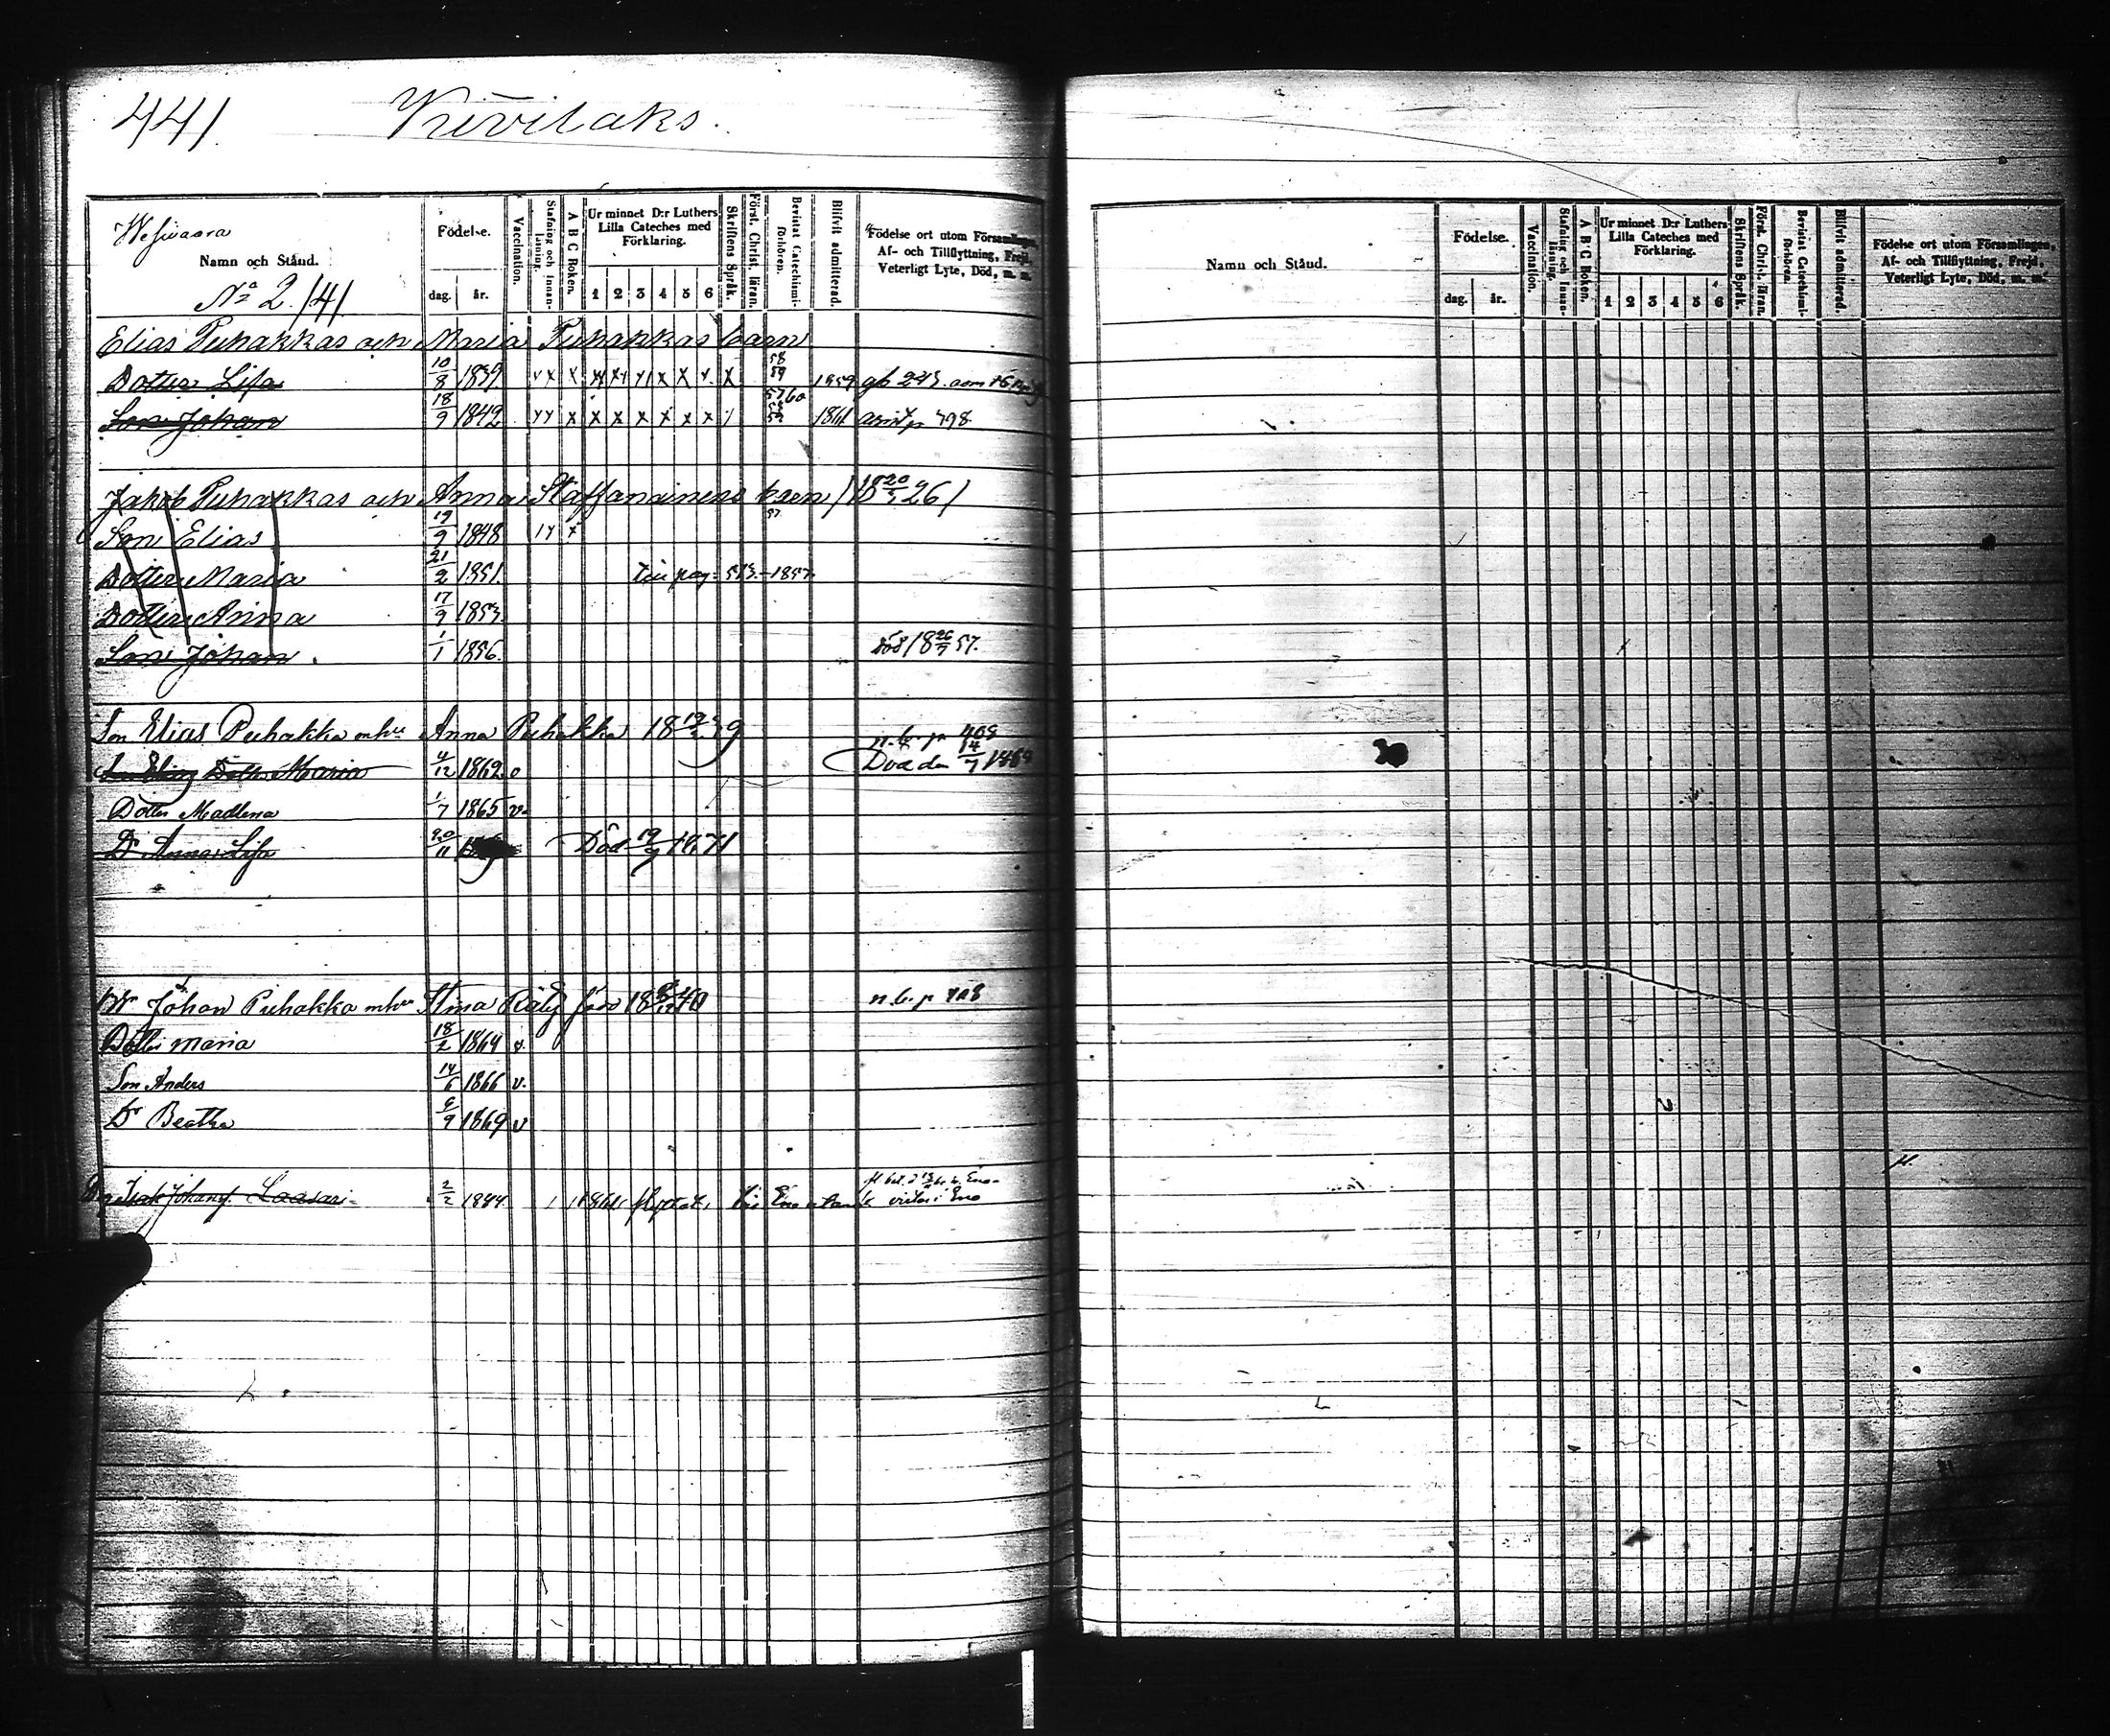 441.
Kivilaks.
Wesivaara
Namn och Stånd.
No 2./4/
Födelse.
dag. år.
Vaccination.
Stafning och Innan-läsning.
A B C Boken.
Ur minnet D:r Luthers Lilla Cateches med Förklaring.
1 2 3 4 5 6
Skriftens Språk.
Först. Christ. läran.
Bevistat Catechismi-förhören.
Blifvit admitterad.
Födelse ort utom Församlingen, Af- och Tillflyttning, Frejd, Veterligt Lyte, Död, m. m.
Elias Puhakkas och Maria Puhakkas barn
Dotter Lisa 10/8 1839 x x x x x x x x x 58 59 1859 gb 243.
Son Johan 18/9 1842 x x x x x x x x 57 60 59 1861 p 798
Jakob Puhakkas och Anna Staffanainens barn /18 20/5 26/
Son Elias 19/9 1848 57
Dotter Maria 21/2 1851. pag. 573.-1857.
Dotter Anna 17/9 1853.
Son Johan. 1/1 1856. död 18 26/7 57.
Son Elias Puhakka mhu Anna Puhakka 18 39 n.b. p 408
Dotter Maria 4/12 1862. Död den 14/7 1868
Dotter Madlena 1/7 1865 v.
Dr Anna Lisa 20/11 Död 19/9 1871
Johan Puhakka mhu Stina Räty född 18 40 n.b. p 708
Dotter Maria 18/2 1864 v.
Son Anders 14/6 1866 v.
Dr Beatha 6/9 1869 v
Isak Johans. Laasari 2/2 1844. 1861 flyttat till Eno i Eno
Namn och Stånd.
Födelse.
dag. år.
Vaccination.
Stafning och Innan-läsning.
A B C Boken.
Ur minnet D:r Luthers Lilla Cateches med Förklaring.
1 2 3 4 5 6
Skriftens Språk.
Först. Christ. läran.
Bevistat Catechismi-förhören.
Blifvit admitterad.
Födelse ort utom Församlingen, Af- och Tillflyttning, Frejd, Veterligt Lyte, Död, m. m.